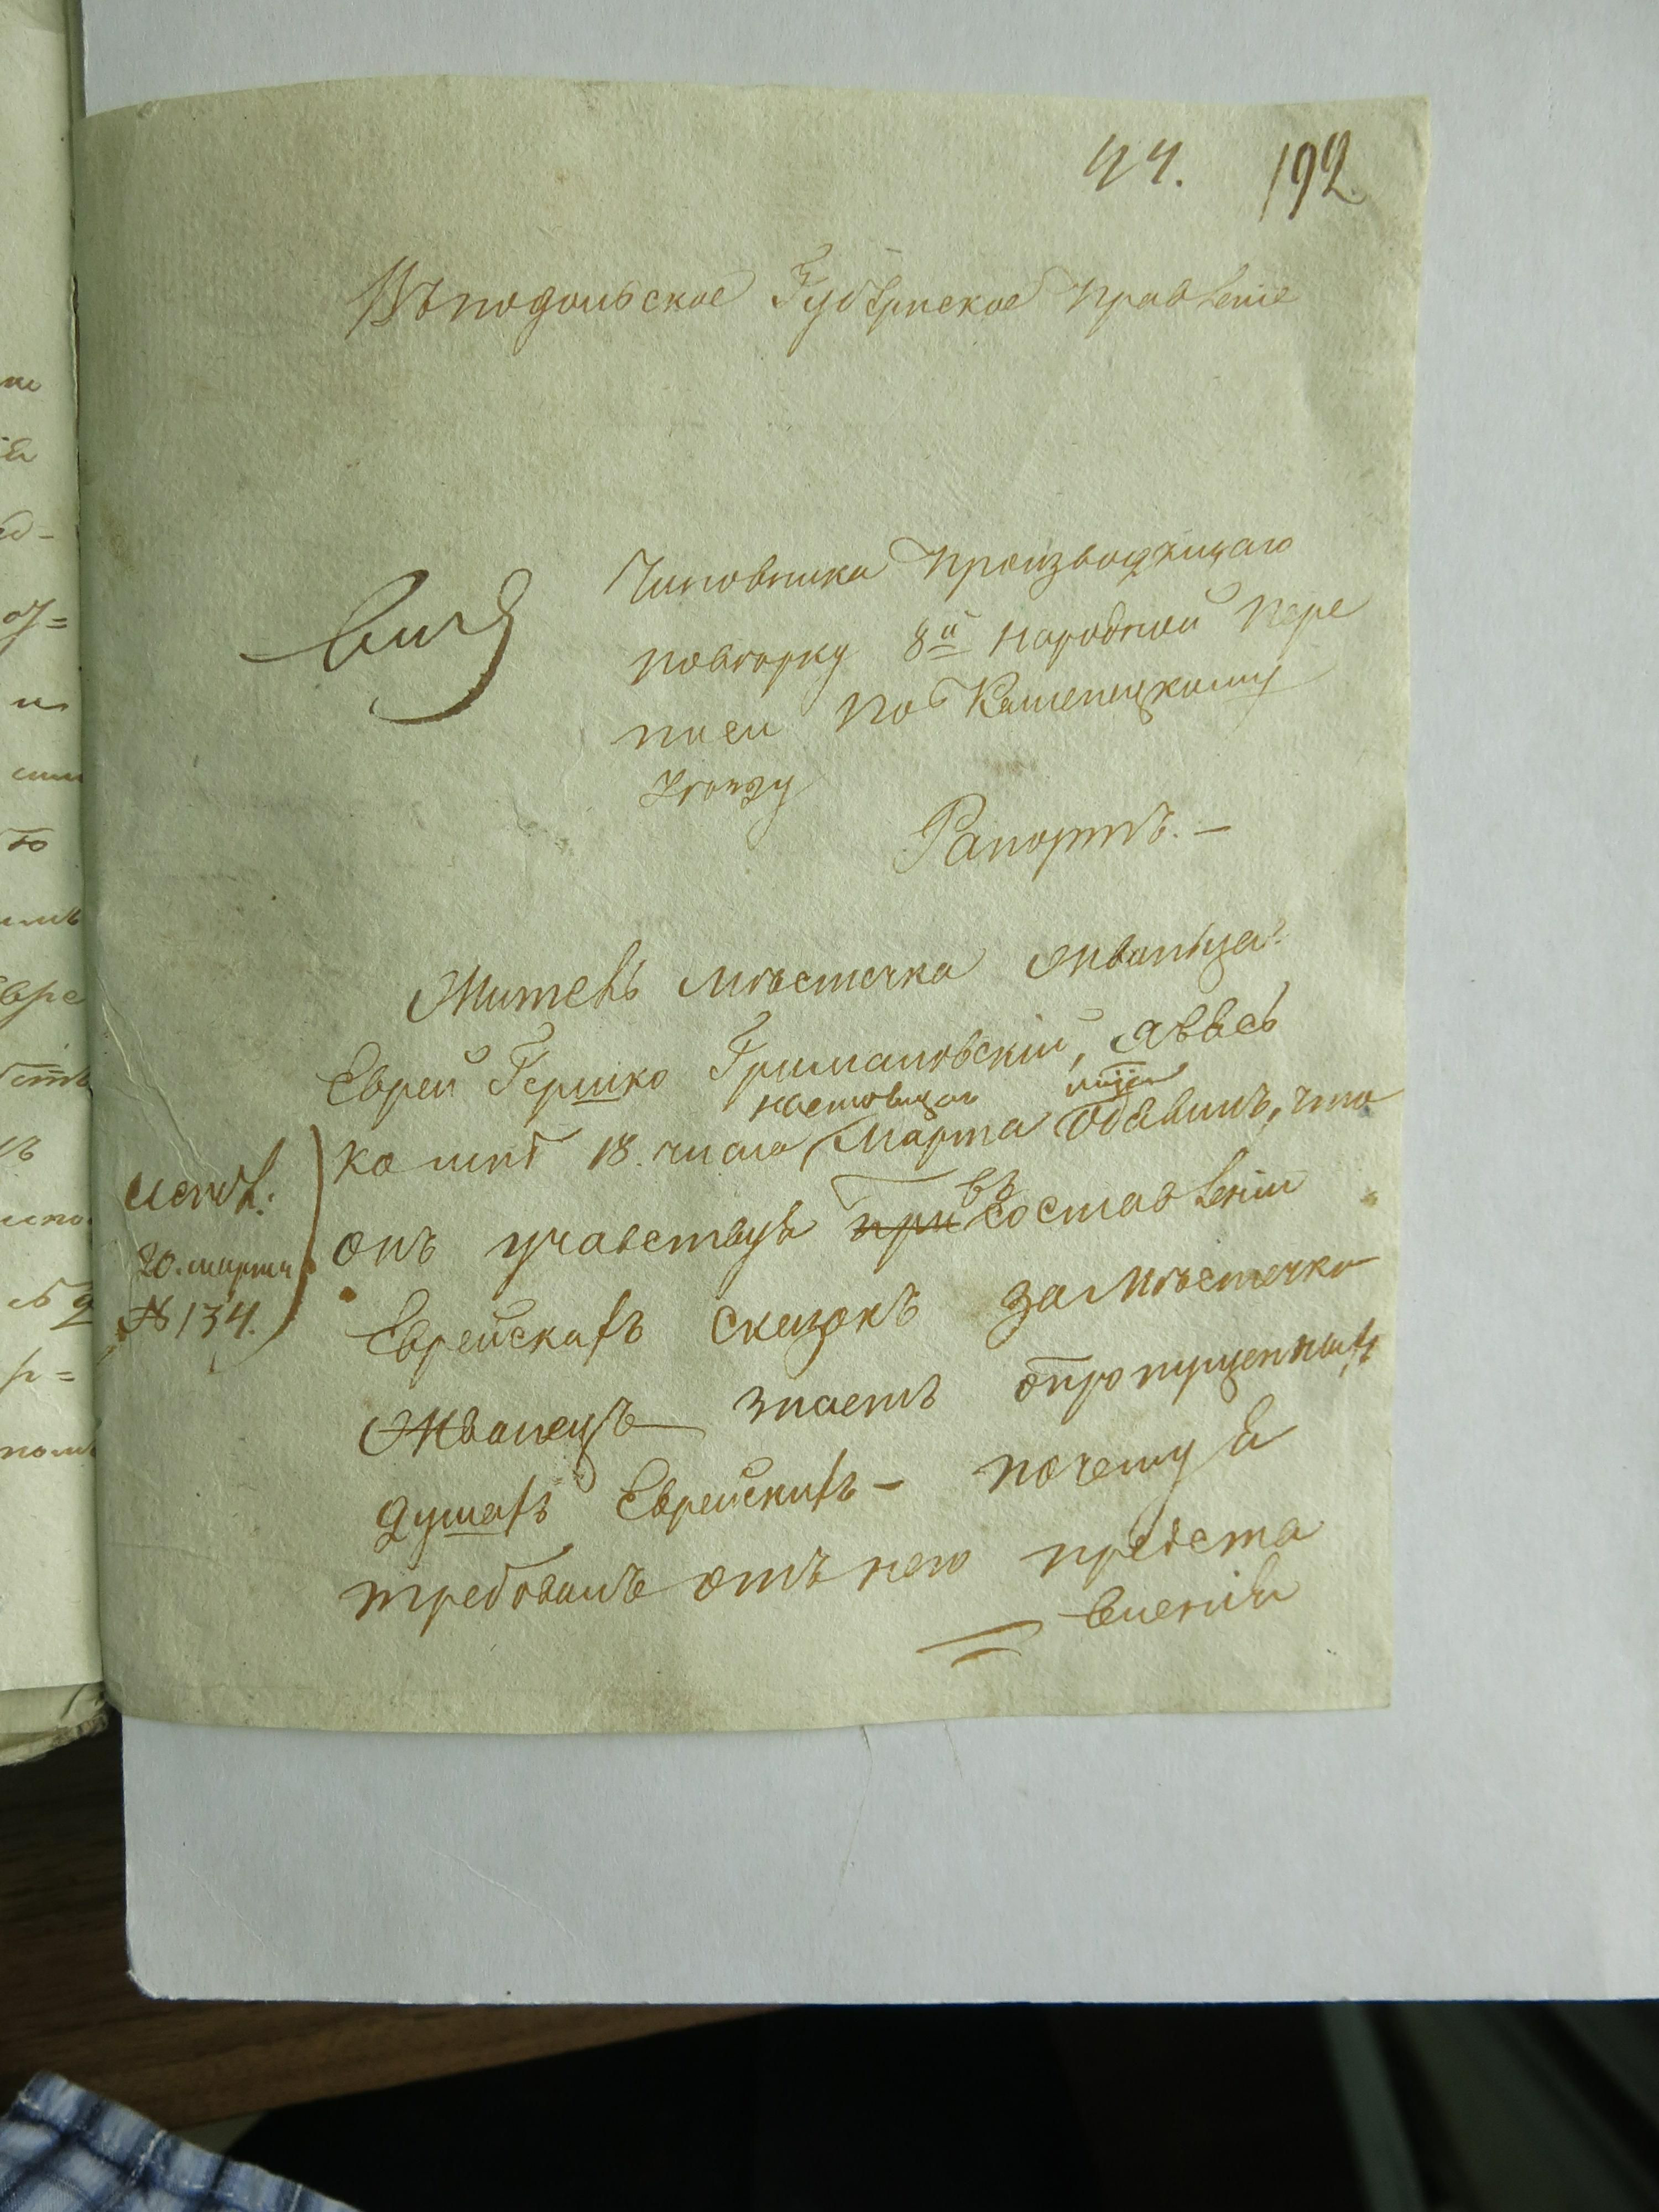 44. 192
Въ подольское Губернское правление
Чиновника Производящаго
повторку 8й народной пере
писи По Каменецкому
уезду
Рапортъ. —
Житель мѣстечка Жванца
Еврей Гершко Грималовскій, явясь
настоящаго
ко мнѣ 18. числа Марта объявилъ, что
въ
онъ участвуя при составленіи
Еврейскихъ сказокъ за мѣстечко
Жванецъ знаетъ о пропущенныхъ
душахъ Еврейскихъ — почему я
требовалъ отъ него предста
вленія
20. марта
№ 134.